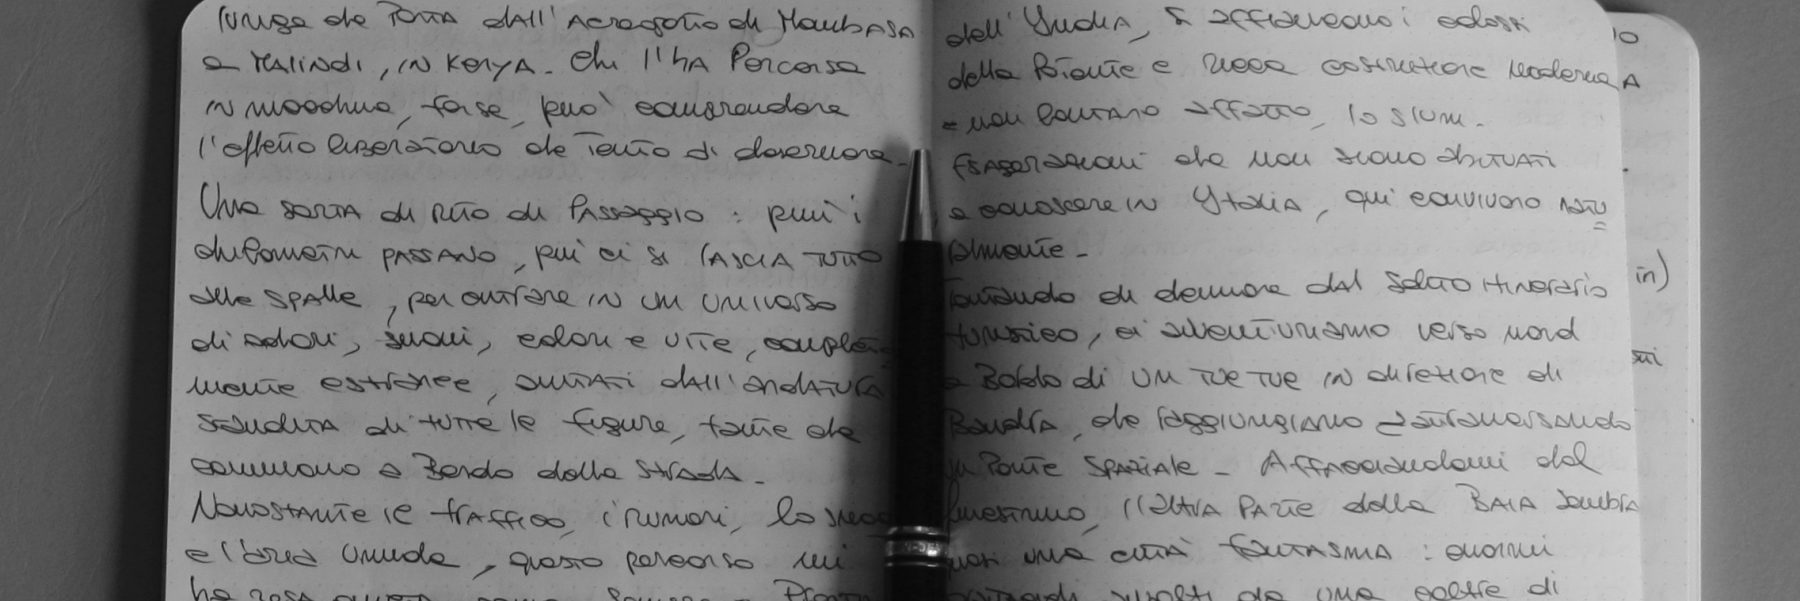 lunga che porta dall'aeroporto di Mombasa
a Malindi, in Kenya. Chi l'ha percorsa
in macchina, forse, può comprendere
l'effetto liberatorio che tento di descrivere.
Una sorta di rito di passaggio: più i
chilometri passano, più ci si lascia tutto
alle spalle, per entrare in un universo
di odori, suoni, colori e vite, completa
mente estranee, aiutati dall'andatura
di tutte le figure, tante che
camminano a bordo della strada.
Nonostante il traffico, i rumori, lo smog
e l'aria umida, questo percorso mi
ha
dell'India, si affiancano i colossi
della potente e ricca costruzione moderna
e non lontano affatto, lo slum.
che non siamo abituati
a conoscere in Italia, qui convivono natu
ralmente.
Tentando di deviare dal solito itinerario
turistico, ci avventuriamo verso nord
a bordo di un tue tue in direzione di
Bandra, che raggiungiamo attraversando
un ponte spaziale. Affacciandomi dal
finestrino, l'altra parte della baia sembra
quasi una città fantasma: enormi
da una coltre di
in)